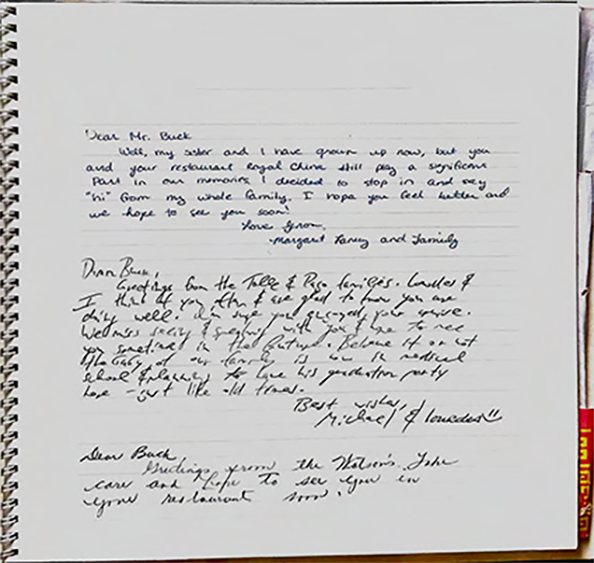 Dear Mr. Buck
Well, my sister and I have grown up now, but you
and your restaurant Royal China still play a significant
Part in our memories. I decided to stop in and say
"hi" from my whole family. I hope you feel better and
we hope to see you soon!
Love from,
-Margaret and family
Dear Buck,
Greetings from the Talle & families. Lourdes &
I think of you often & are glad to know you are
doing well. I'm sure you enjoyed your
We miss seeing & speaking with you & to see
you sometimes in the future. Believe it or not
the baby of our family is now in medical
school & planning to have his graduation party
here - just like old times.
Best wishes,
Michael & Lourdes
Dear Buck,
Greetings from the Watson's. Take
care and hope to see you in
your restaurant soon.